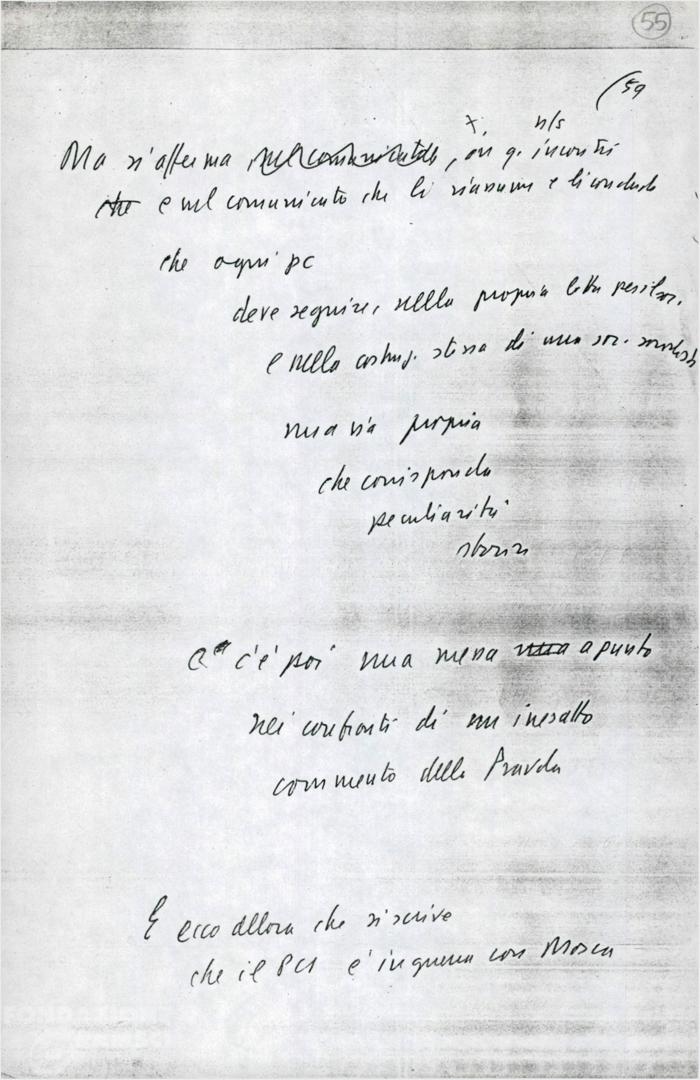 55
59
n/s
Ma si afferma nel comunicato, in q. incontri
che e nel comunicato che li riassume e li conclude
che ogni pc
deve seguire, nella propria lotta
e nella costruz. stessa di una soc. socialista
una via propria
che corrisponda
peculiarità
storiche
E c'è poi una messa una a punto
nei confronti di un inesatto
commento della Pravda
E ecco allora che si scrive
che il PCI è in guerra con Mosca